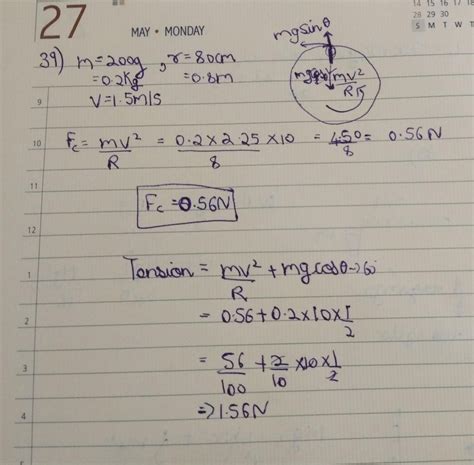 27
MAY • MONDAY
14 15 16 17 18
28 29 30
S M T W T
39) m = 200g , r = 80cm
= 0.2Kg = 0.8m
V = 1.5m/s
mg sinθ
mgcosθ mv²/R
Fc = mv²/R = 0.2 x 2.25 x10/8 = 4.50/8 = 0.56N
Fc = 0.56N
Tension = mv²/R + mg cosθ → 60
= 0.56 + 0.2 x 10 x 1/2
= 56/100 + 2/10 x 10 x 1/2
=> 1.56N
9
10
11
12
1
2
3
4